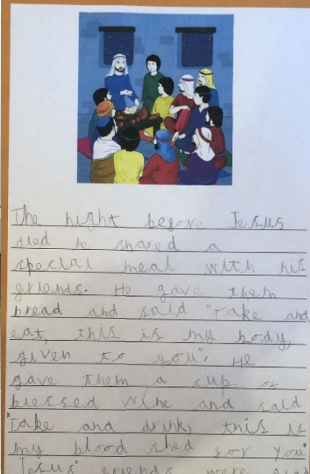 The night before Jesus
died he shared a
special meal with his
friends. He gave them
bread and said "Take and
eat, this is my body,
given to you". He
gave them a cup of
blessed wine and said
"Take and drink, this is
my blood shed for you"
Jesus' friends were